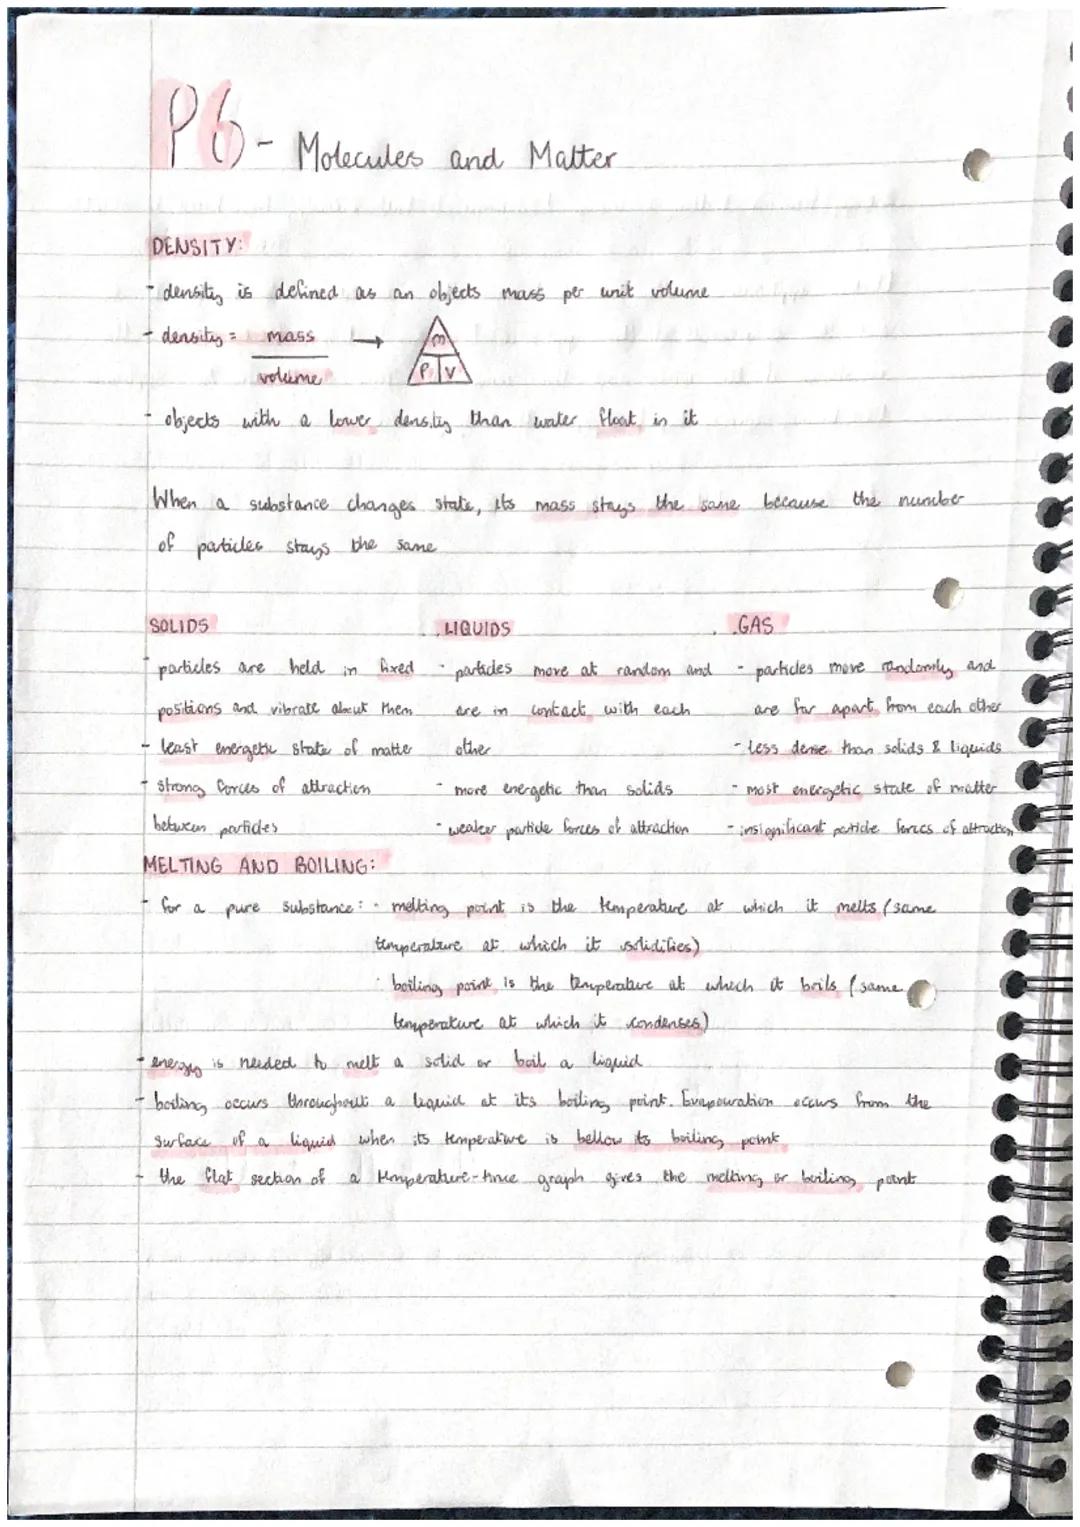 P6 - Molecules and Matter
DENSITY:
- density is defined as an objects mass per unit volume
- density = mass
volume
m
P V
- objects with a lower density than water float in it
When a substance changes state, its mass stays the same because the number
of particles stays the same
SOLIDS
- particles are held in fixed
positions and vibrate about them
- least energetic state of matter
- strong forces of attraction
between particles
LIQUIDS
- particles move at random and
are in contact with each
other
- more energetic than solids
- weaker particle forces of attraction
GAS
- particles move randomly and
are far apart from each other
- less dense than solids & liquids
- most energetic state of matter
- insignificant particle forces of attraction
MELTING AND BOILING:
- for a pure substance: · melting point is the temperature at which it melts (same
temperature at which it solidifies)
· boiling point is the temperature at which it boils (same
temperature at which it condenses)
- energy is needed to melt a solid or boil a liquid
- boiling occurs throughout a liquid at its boiling point. Evapouration occurs from the
surface of a liquid when its temperature is bellow its boiling point
- the flat section of a temperature-time graph gives the melting or boiling point